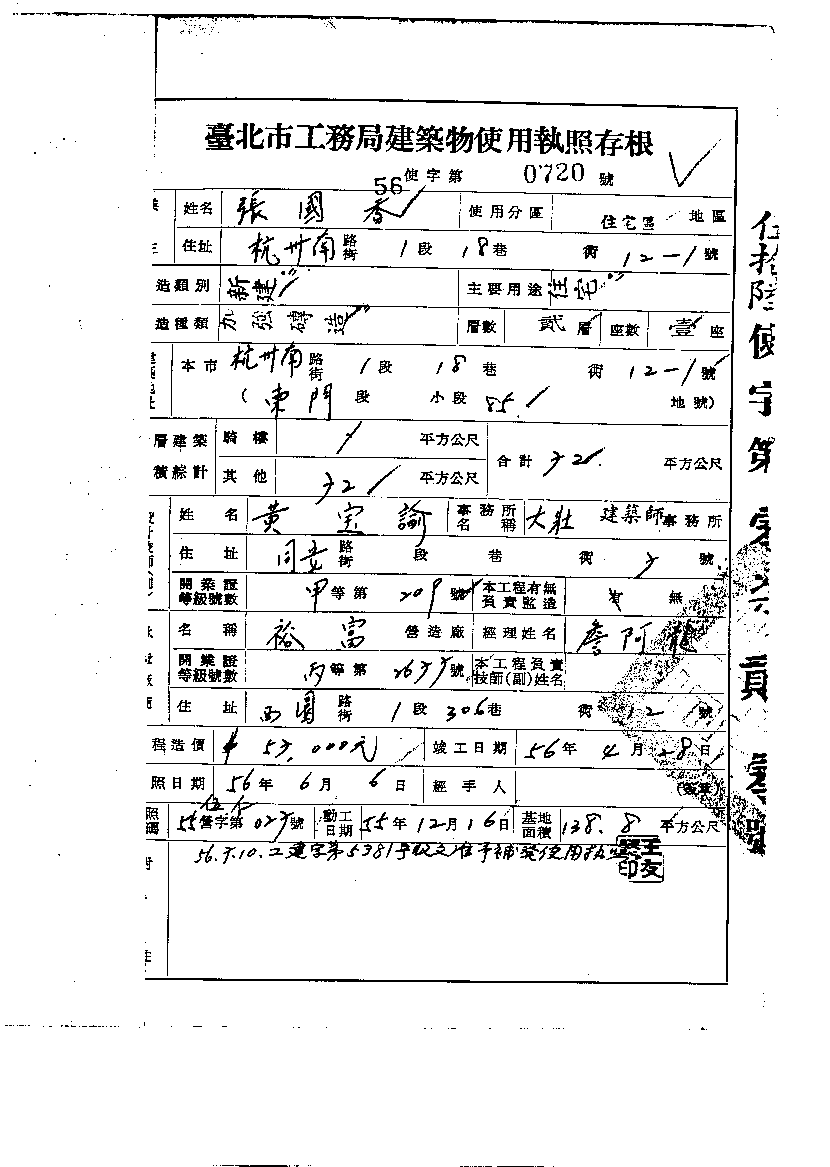 臺北市工務局建築物使用執照存根
56使字第 0720 號
姓名 張國香 使用分區 住宅區 地區
住址 杭州南 路街 1段 18巷 衖 12-1號
造類別 新建 主要用途 住宅
造種類 加強磚造 層數 貳層 座數 壹座
本市 杭州南 路街 1段 18巷 衖 12-1號
(東門 段 小段 85 地號)
層建築 騎樓 平方公尺 合計 平方公尺
橫綜計 其他 平方公尺
姓名 黃宝瑜 事務所名稱 大壯 建築師事務所
住址 同安 路街 段 巷 衖 號
開業證等級號數 甲等第 209號 本工程有無負責監造 有 無
名稱 裕富 營造廠 經理姓名 詹阿龍
開業證等級號數 丙等第 號 本工程負責技師(副)姓名
住址 西園 路街 1段 306巷 衖 12號
程造價 000元 竣工日期 56年4月28日
照日期 56年6月6日 經手人 (簽章)
照 55營字第 號 動工日期 55年12月16日 基地面積 138.8平方公尺
工建字第5381号 准予補發使用執
伍拾陸使字第